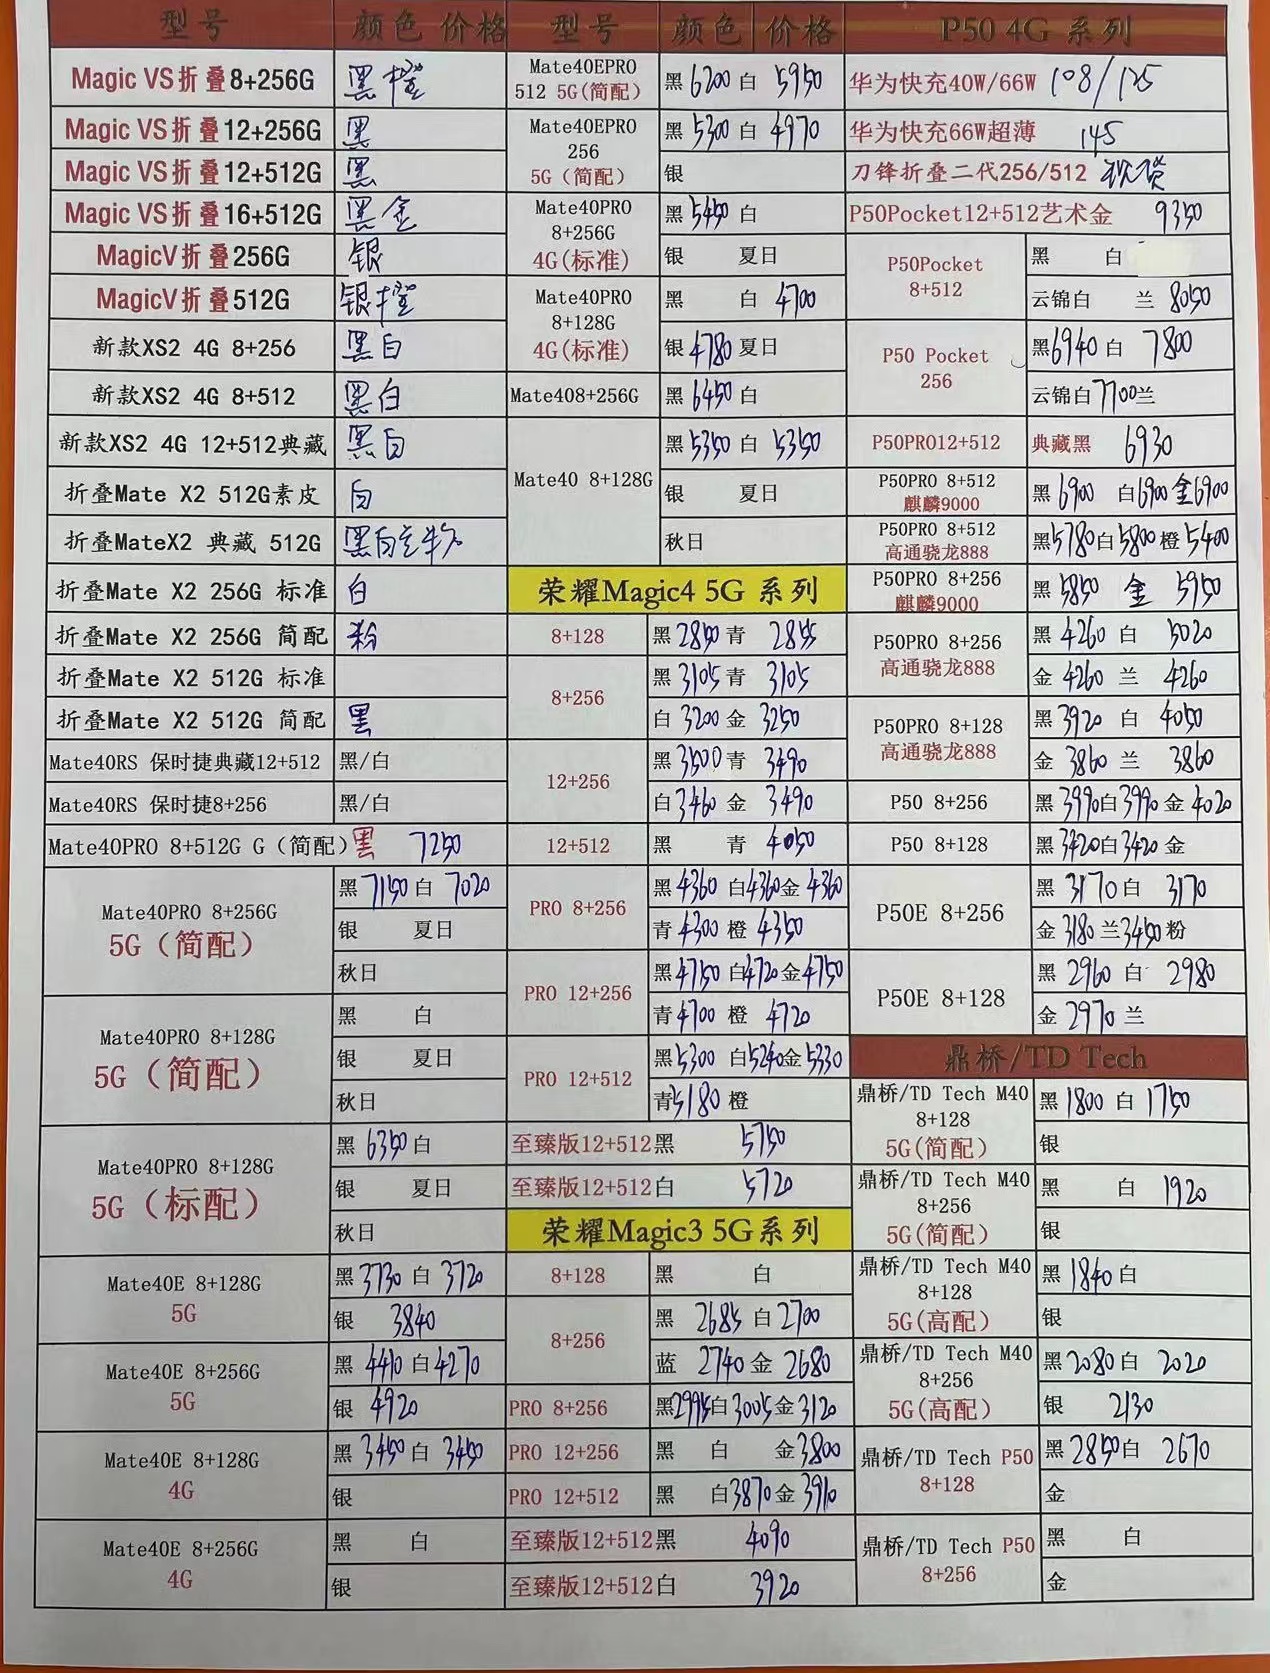 型号 颜色 价格
Magic VS折叠8+256G 黑 橙
Magic VS折叠12+256G 黑
Magic VS折叠12+512G 黑
Magic VS折叠16+512G 黑 金
MagicV折叠256G 银
MagicV折叠512G 银 橙
新款XS2 4G 8+256 黑 白
新款XS2 4G 8+512 黑 白
新款XS2 4G 12+512典藏 黑 白
折叠Mate X2 512G素皮 白
折叠MateX2 典藏 512G 黑 白
折叠Mate X2 256G 标准 白
折叠Mate X2 256G 简配 粉
折叠Mate X2 512G 标准
折叠Mate X2 512G 简配 黑
Mate40RS 保时捷典藏12+512 黑/白
Mate40RS 保时捷8+256 黑/白
Mate40PRO 8+512G G(简配) 黑 7250
Mate40PRO 8+256G
5G(简配)
黑 7150 白 7020
银 夏日
秋日
Mate40PRO 8+128G
5G(简配)
黑 白
银 夏日
秋日
Mate40PRO 8+128G
5G(标配)
黑 6350 白
银 夏日
秋日
Mate40E 8+128G
5G
黑 3730 白 3720
银 3840
Mate40E 8+256G
5G
黑 4410 白 4270
银 4920
Mate40E 8+128G
4G
黑 3450 白 3450
银
Mate40E 8+256G
4G
黑 白
银
型号 颜色 价格
Mate40EPRO
512 5G(简配)
黑 6200 白 5950
Mate40EPRO
256
5G(简配)
黑 5300 白 4970
银
Mate40PRO
8+256G
4G(标准)
黑 5450 白
银 夏日
Mate40PRO
8+128G
4G(标准)
黑 白 4700
银 4780 夏日
Mate408+256G 黑 6450 白
Mate40 8+128G
黑 5350 白 5350
银 夏日
秋日
荣耀Magic4 5G 系列
8+128 黑 2850 青 2855
8+256
黑 3105 青 3105
白 3200 金 3250
12+256
黑 3500 青 3490
白 3460 金 3490
12+512 黑 青 4050
PRO 8+256
黑 4360 白 4360 金 4360
青 4300 橙 4350
PRO 12+256
黑 4750 白 4720 金 4750
青 4700 橙 4720
PRO 12+512
黑 5300 白 5240 金 5330
青 5180 橙
至臻版12+512黑 5750
至臻版12+512白 5720
荣耀Magic3 5G系列
8+128 黑 白
8+256
黑 2685 白 2700
蓝 2740 金 2680
PRO 8+256 黑 2995 白 3005 金 3120
PRO 12+256 黑 白 金 3800
PRO 12+512 黑 白 3870 金 3910
至臻版12+512黑 4090
至臻版12+512白 3920
P50 4G 系列
华为快充40W/66W 108/125
华为快充66W超薄 145
刀锋折叠二代256/512 现货
P50Pocket12+512艺术金 9350
P50Pocket
8+512
黑 白
云锦白 兰 8050
P50 Pocket
256
黑 6940 白 7800
云锦白 7700 兰
P50PRO12+512 典藏黑 6930
P50PRO 8+512
麒麟9000
黑 6900 白 6900 金 6900
P50PRO 8+512
高通骁龙888
黑 5780 白 5800 橙 5400
P50PRO 8+256
麒麟9000
黑 5850 金 5950
P50PRO 8+256
高通骁龙888
黑 4260 白 5020
金 4260 兰 4260
P50PRO 8+128
高通骁龙888
黑 3920 白 4050
金 3860 兰 3860
P50 8+256 黑 3990 白 3990 金 4020
P50 8+128 黑 3420 白 3420 金
P50E 8+256
黑 3170 白 3170
金 3180 兰 3450 粉
P50E 8+128
黑 2960 白 2980
金 2970 兰
鼎桥/TD Tech
鼎桥/TD Tech M40
8+128
5G(简配)
黑 1800 白 1750
银
鼎桥/TD Tech M40
8+256
5G(简配)
黑 白 1920
银
鼎桥/TD Tech M40
8+128
5G(高配)
黑 1840 白
银
鼎桥/TD Tech M40
8+256
5G(高配)
黑 2080 白 2020
银 2130
鼎桥/TD Tech P50
8+128
黑 2850 白 2670
金
鼎桥/TD Tech P50
8+256
黑 白
金